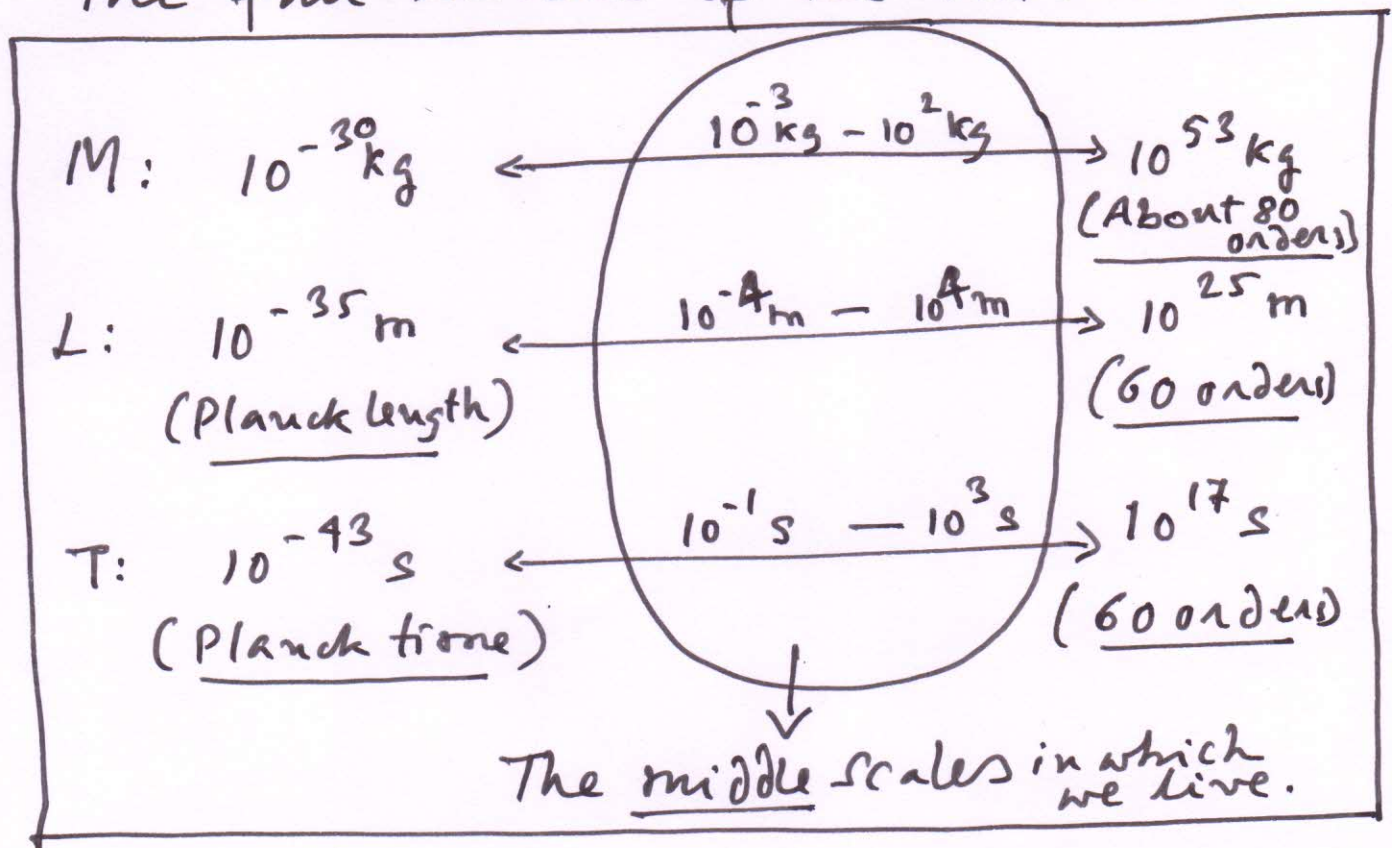 M: 10⁻³⁰ kg 10⁻³ kg – 10² kg 10⁵³ kg
(About 80
orders)
L: 10⁻³⁵ m 10⁻⁴ m – 10⁴ m 10²⁵ m
(Planck length) (60 orders)
T: 10⁻⁴³ s 10⁻¹ s – 10³ s 10¹⁷ s
(Planck time) (60 orders)
The middle scales in which
we live.